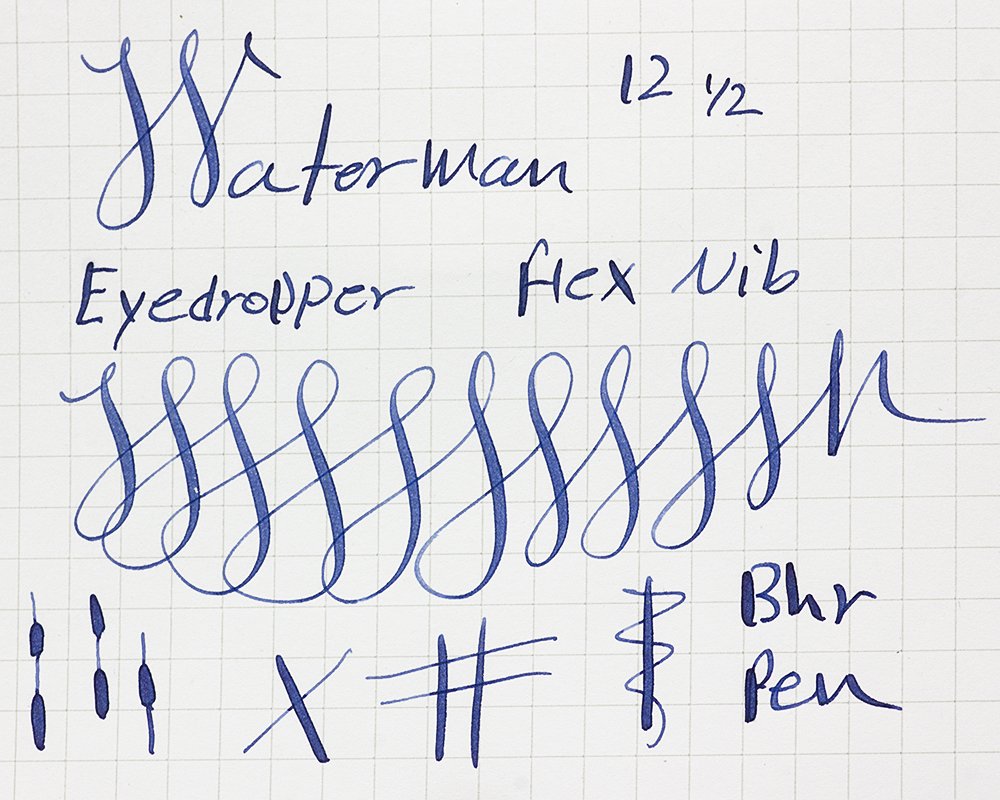 Waterman 12 1/2
Eyedropper flex Nib
Bhr
Pen